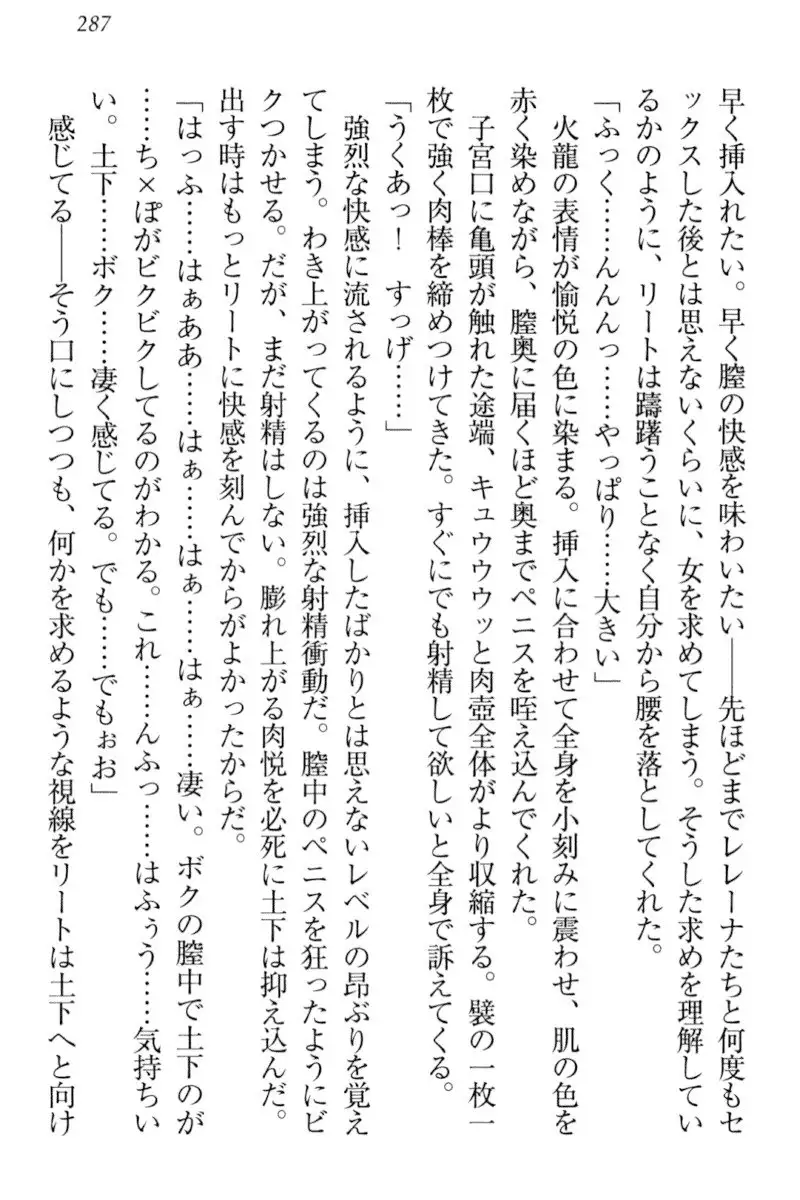 287
早く挿入れたい。早く膣の快感を味わいたい――先ほどまでレレーナたちと何度もセ
ックスした後とは思えないくらいに、女を求めてしまう。そうした求めを理解してい
るかのように、リートは躊躇うことなく自分から腰を落としてくれた。
「ふっく……んんんっ……やっぱり……大きい」
火龍の表情が愉悦の色に染まる。挿入に合わせて全身を小刻みに震わせ、肌の色を
赤く染めながら、膣奥に届くほど奥までペニスを咥え込んでくれた。
子宮口に亀頭が触れた途端、キュウウウッと肉壺全体がより収縮する。襞の一枚一
枚で強く肉棒を締めつけてきた。すぐにでも射精して欲しいと全身で訴えてくる。
「うくあっ！　すっげ……」
強烈な快感に流されるように、挿入したばかりとは思えないレベルの昂ぶりを覚え
てしまう。わき上がってくるのは強烈な射精衝動だ。膣中のペニスを狂ったようにビ
クつかせる。だが、まだ射精はしない。膨れ上がる肉悦を必死に土下は抑え込んだ。
出す時はもっとリートに快感を刻んでからがよかったからだ。
「はっふ……はぁああ……はぁ……はぁ……はぁ……凄い。ボクの膣中で土下のが
……ち×ぽがビクビクしてるのがわかる。これ……んふっ……はふぅう……気持ちい
い。土下……ボク……凄く感じてる。でも……でもぉお」
感じてる――そう口にしつつも、何かを求めるような視線をリートは土下へと向け